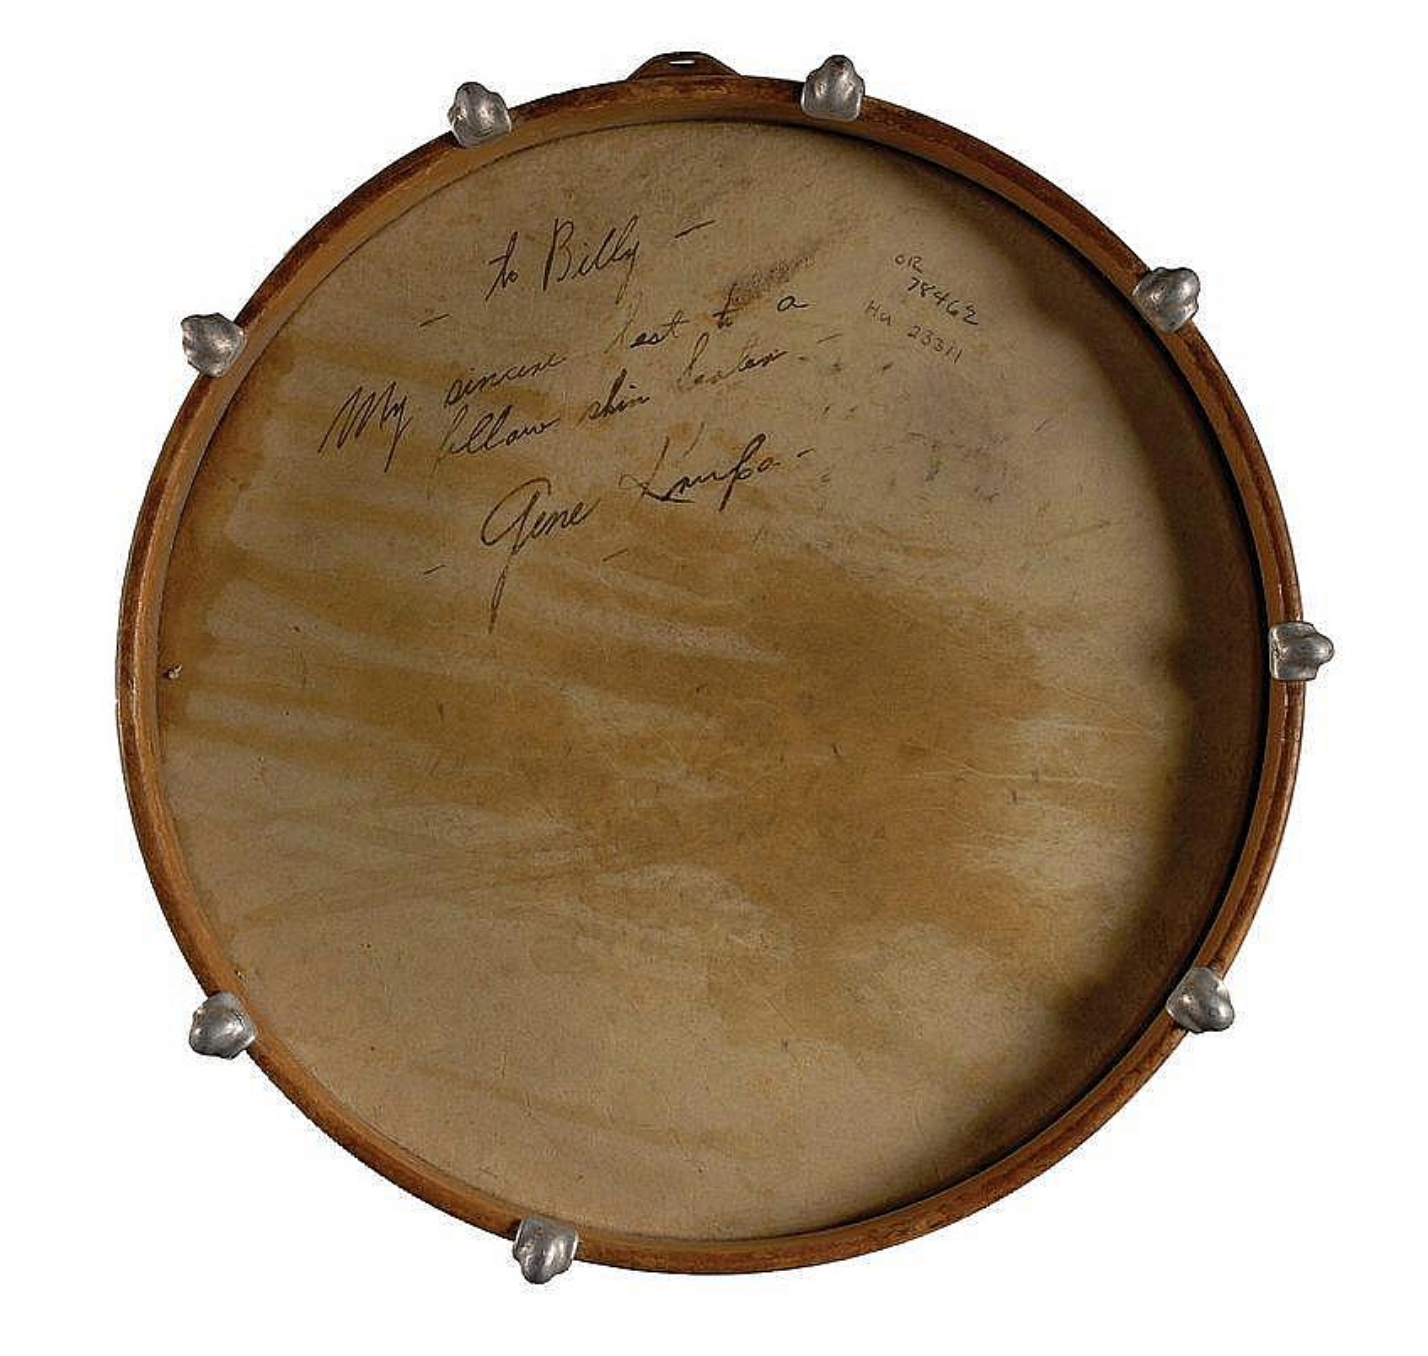 to Billy —
— My sincere best to a
fellow skin beater —
Gene Krupa —
OR
78462
Hu 23311